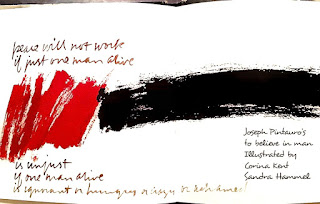 peace will not work
if just one man alive
is unjust
if one man alive
is ignorant or hungry or crazy or ashamed
Joseph Pintauro's
to believe in man
Illustrated by
Corina Kent
Sandra Hammel